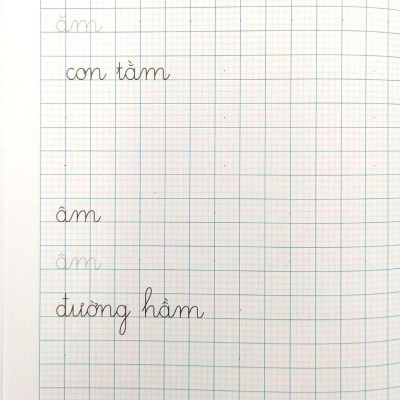 ăm
con tằm
âm
âm
đường hầm